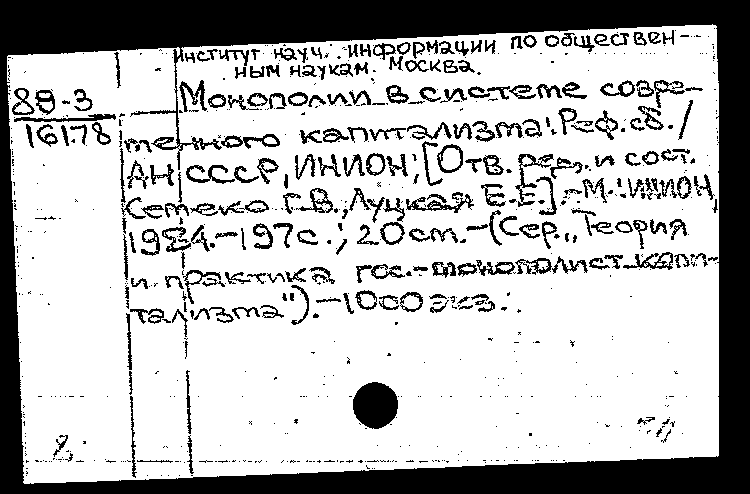 институт науч. информации по обществен-
ным наукам. Москва.
89-3
16178
Монополии в системе совре-
менного капитализма: Реф. сб. /
АН СССР, ИНИОН; [Отв. ред. и сост.
Семеко Г.В., Луцкая Е.Е.]. - М.: ИНИОН,
1984. - 197 с.; 20 см. - (Сер. "Теория
и практика гос.-монополист. капи-
тализма"). - 1000 экз.